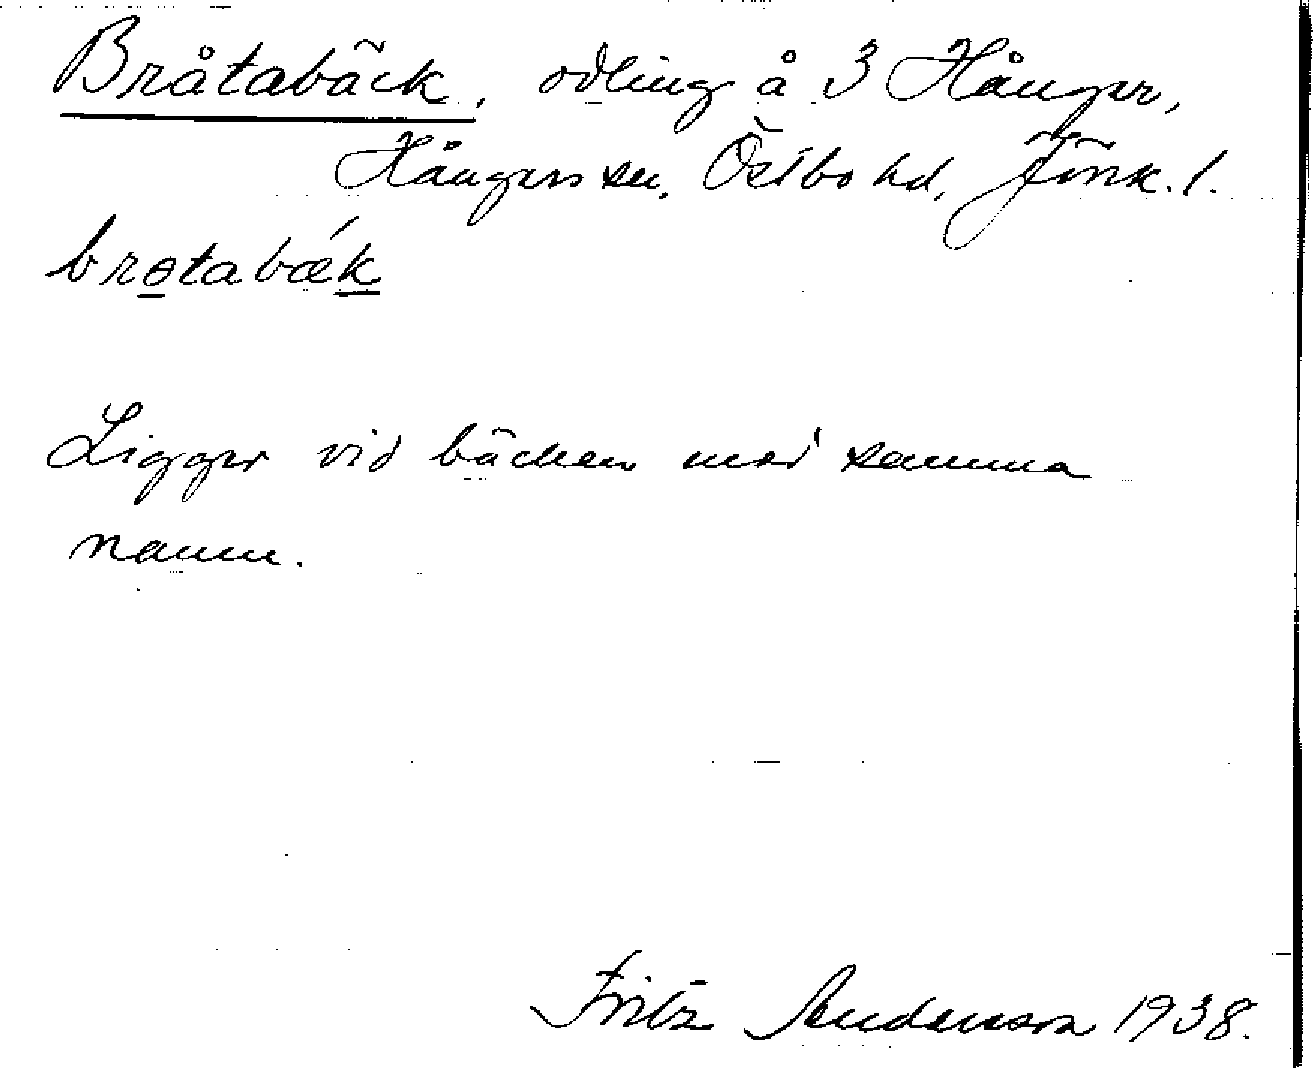 Bråtabäck, odling å 3 Hånger,
Hångers sn, Östbo hd, Jönk. l.
brotabæ´k
Ligger vid bäcken med samma
namn.
Fritz Anderson 1938.